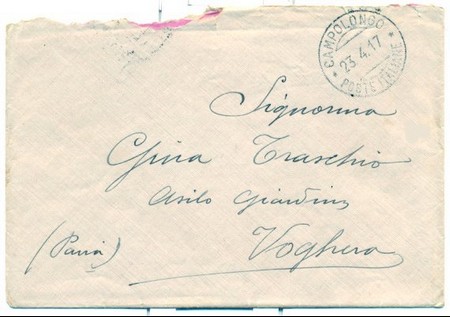 CAMPOLONGO
23.4.17
* POSTE ITALIANE *
Signorina
Gina Traschio
Asilo Giardino
Voghera
(Pavia)